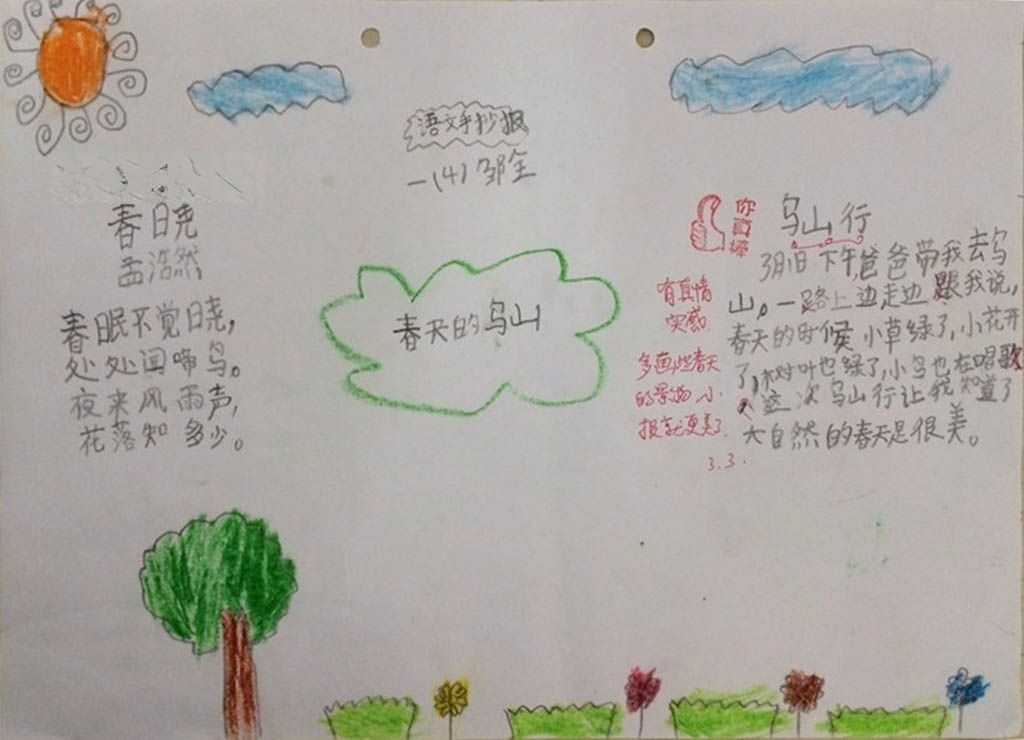 语文手抄报
一(4) 邹全
春晓
孟浩然
春眠不觉晓,
处处闻啼鸟。
夜来风雨声,
花落知多少。
春天的乌山
你真棒
乌山行
3月1日下午爸爸带我去乌
山。一路上边走边跟我说,
春天的时候小草绿了,小花开
了,树叶也绿了,小鸟也在唱歌
这次乌山行让我知道了
大自然的春天是很美。
有真情
实感
多画些春天
的景物,小
报就更美了.
3.3.